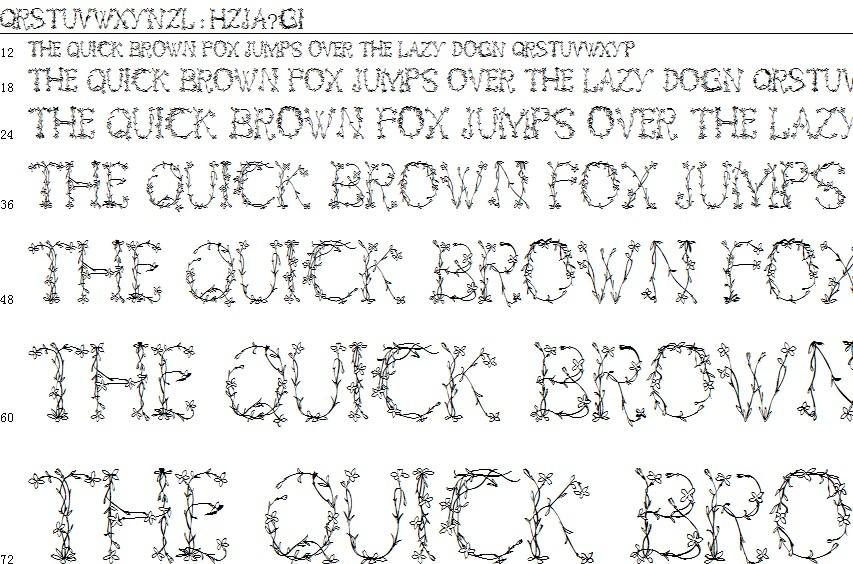 QRSTUVWXYNZL : HZJA?GI
12 THE QUICK BROWN FOX JUMPS OVER THE LAZY DOGN QRSTUVWXYP
18 THE QUICK BROWN FOX JUMPS OVER THE LAZY DOGN QRSTUV
24 THE QUICK BROWN FOX JUMPS OVER THE LAZY
36 THE QUICK BROWN FOX JUMPS
48 THE QUICK BROWN FOX
60 THE QUICK BROWN
72 THE QUICK BRO